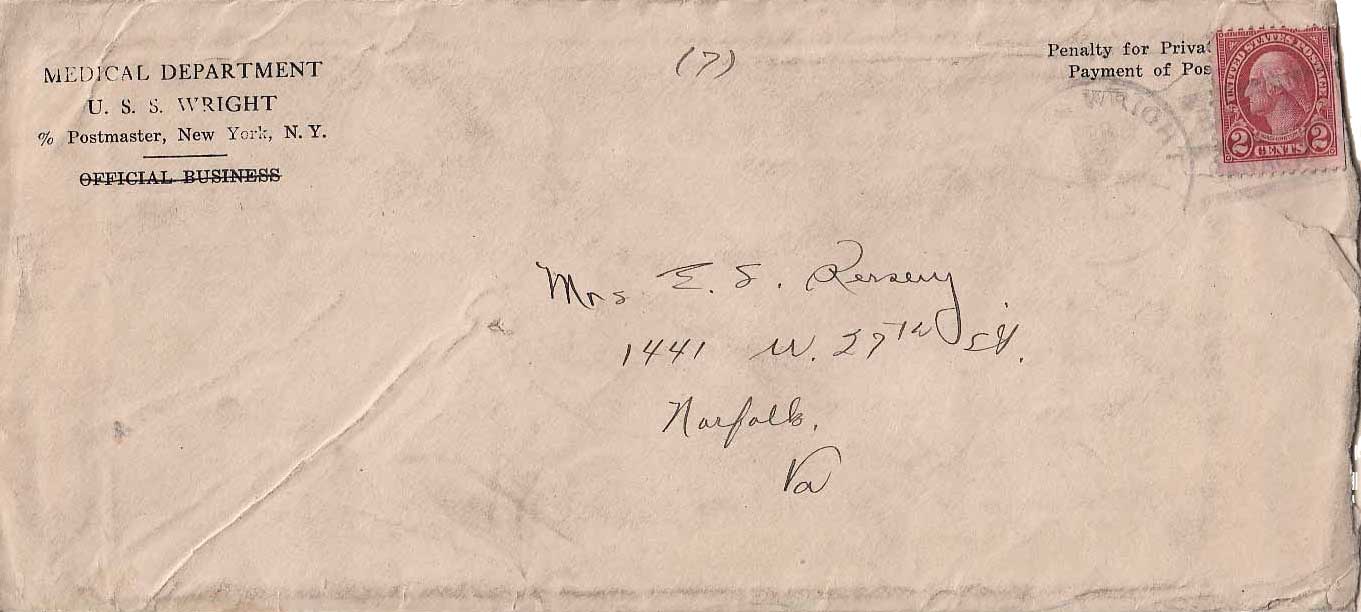 MEDICAL DEPARTMENT
U. S. S. WRIGHT
% Postmaster, New York, N. Y.
OFFICIAL BUSINESS
(7)
Penalty for Privat
Payment of Pos
WRIGHT
UNITED STATES POSTAGE
WASHINGTON
2 CENTS 2
Mrs E. S. Kersey
1441 W. 27TH St.
Norfolk,
Va